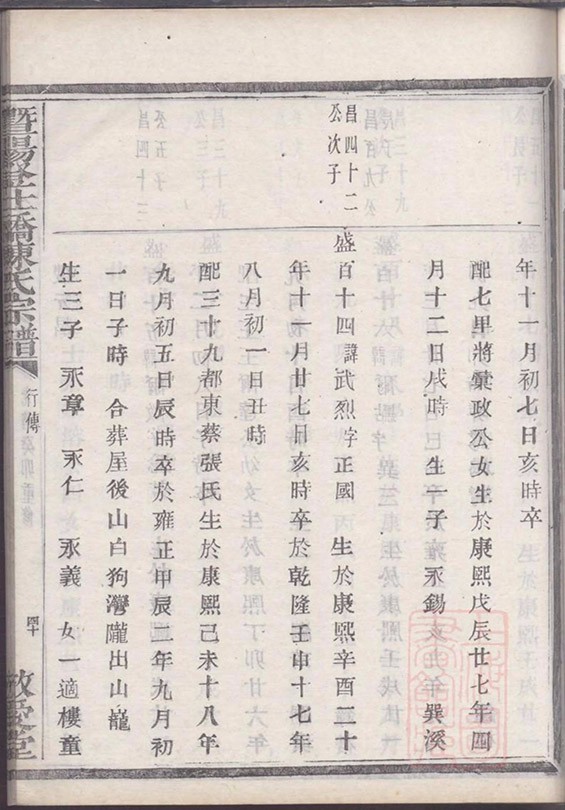 年十一月初七日亥時卒
配七里將棠政公女生於康熙戊辰廿七年四
月十二日戌時 生一子 永錫
昌四十二
公次子
盛百十四諱武烈字正國 生於康熙辛酉二十
年十一月廿七日亥時卒於乾隆壬申十七年
八月初一日丑時
配三十九都東蔡張氏生於康熙己未十八年
九月初五日辰時卒於雍正甲辰二年九月初
一日子時 合葬屋後山白狗灣隴出山龍
生三子 永章 永仁 永義 女一適樓童
暨陽 橋陳氏宗譜
行傳
癸卯重修
四十
敬愛堂